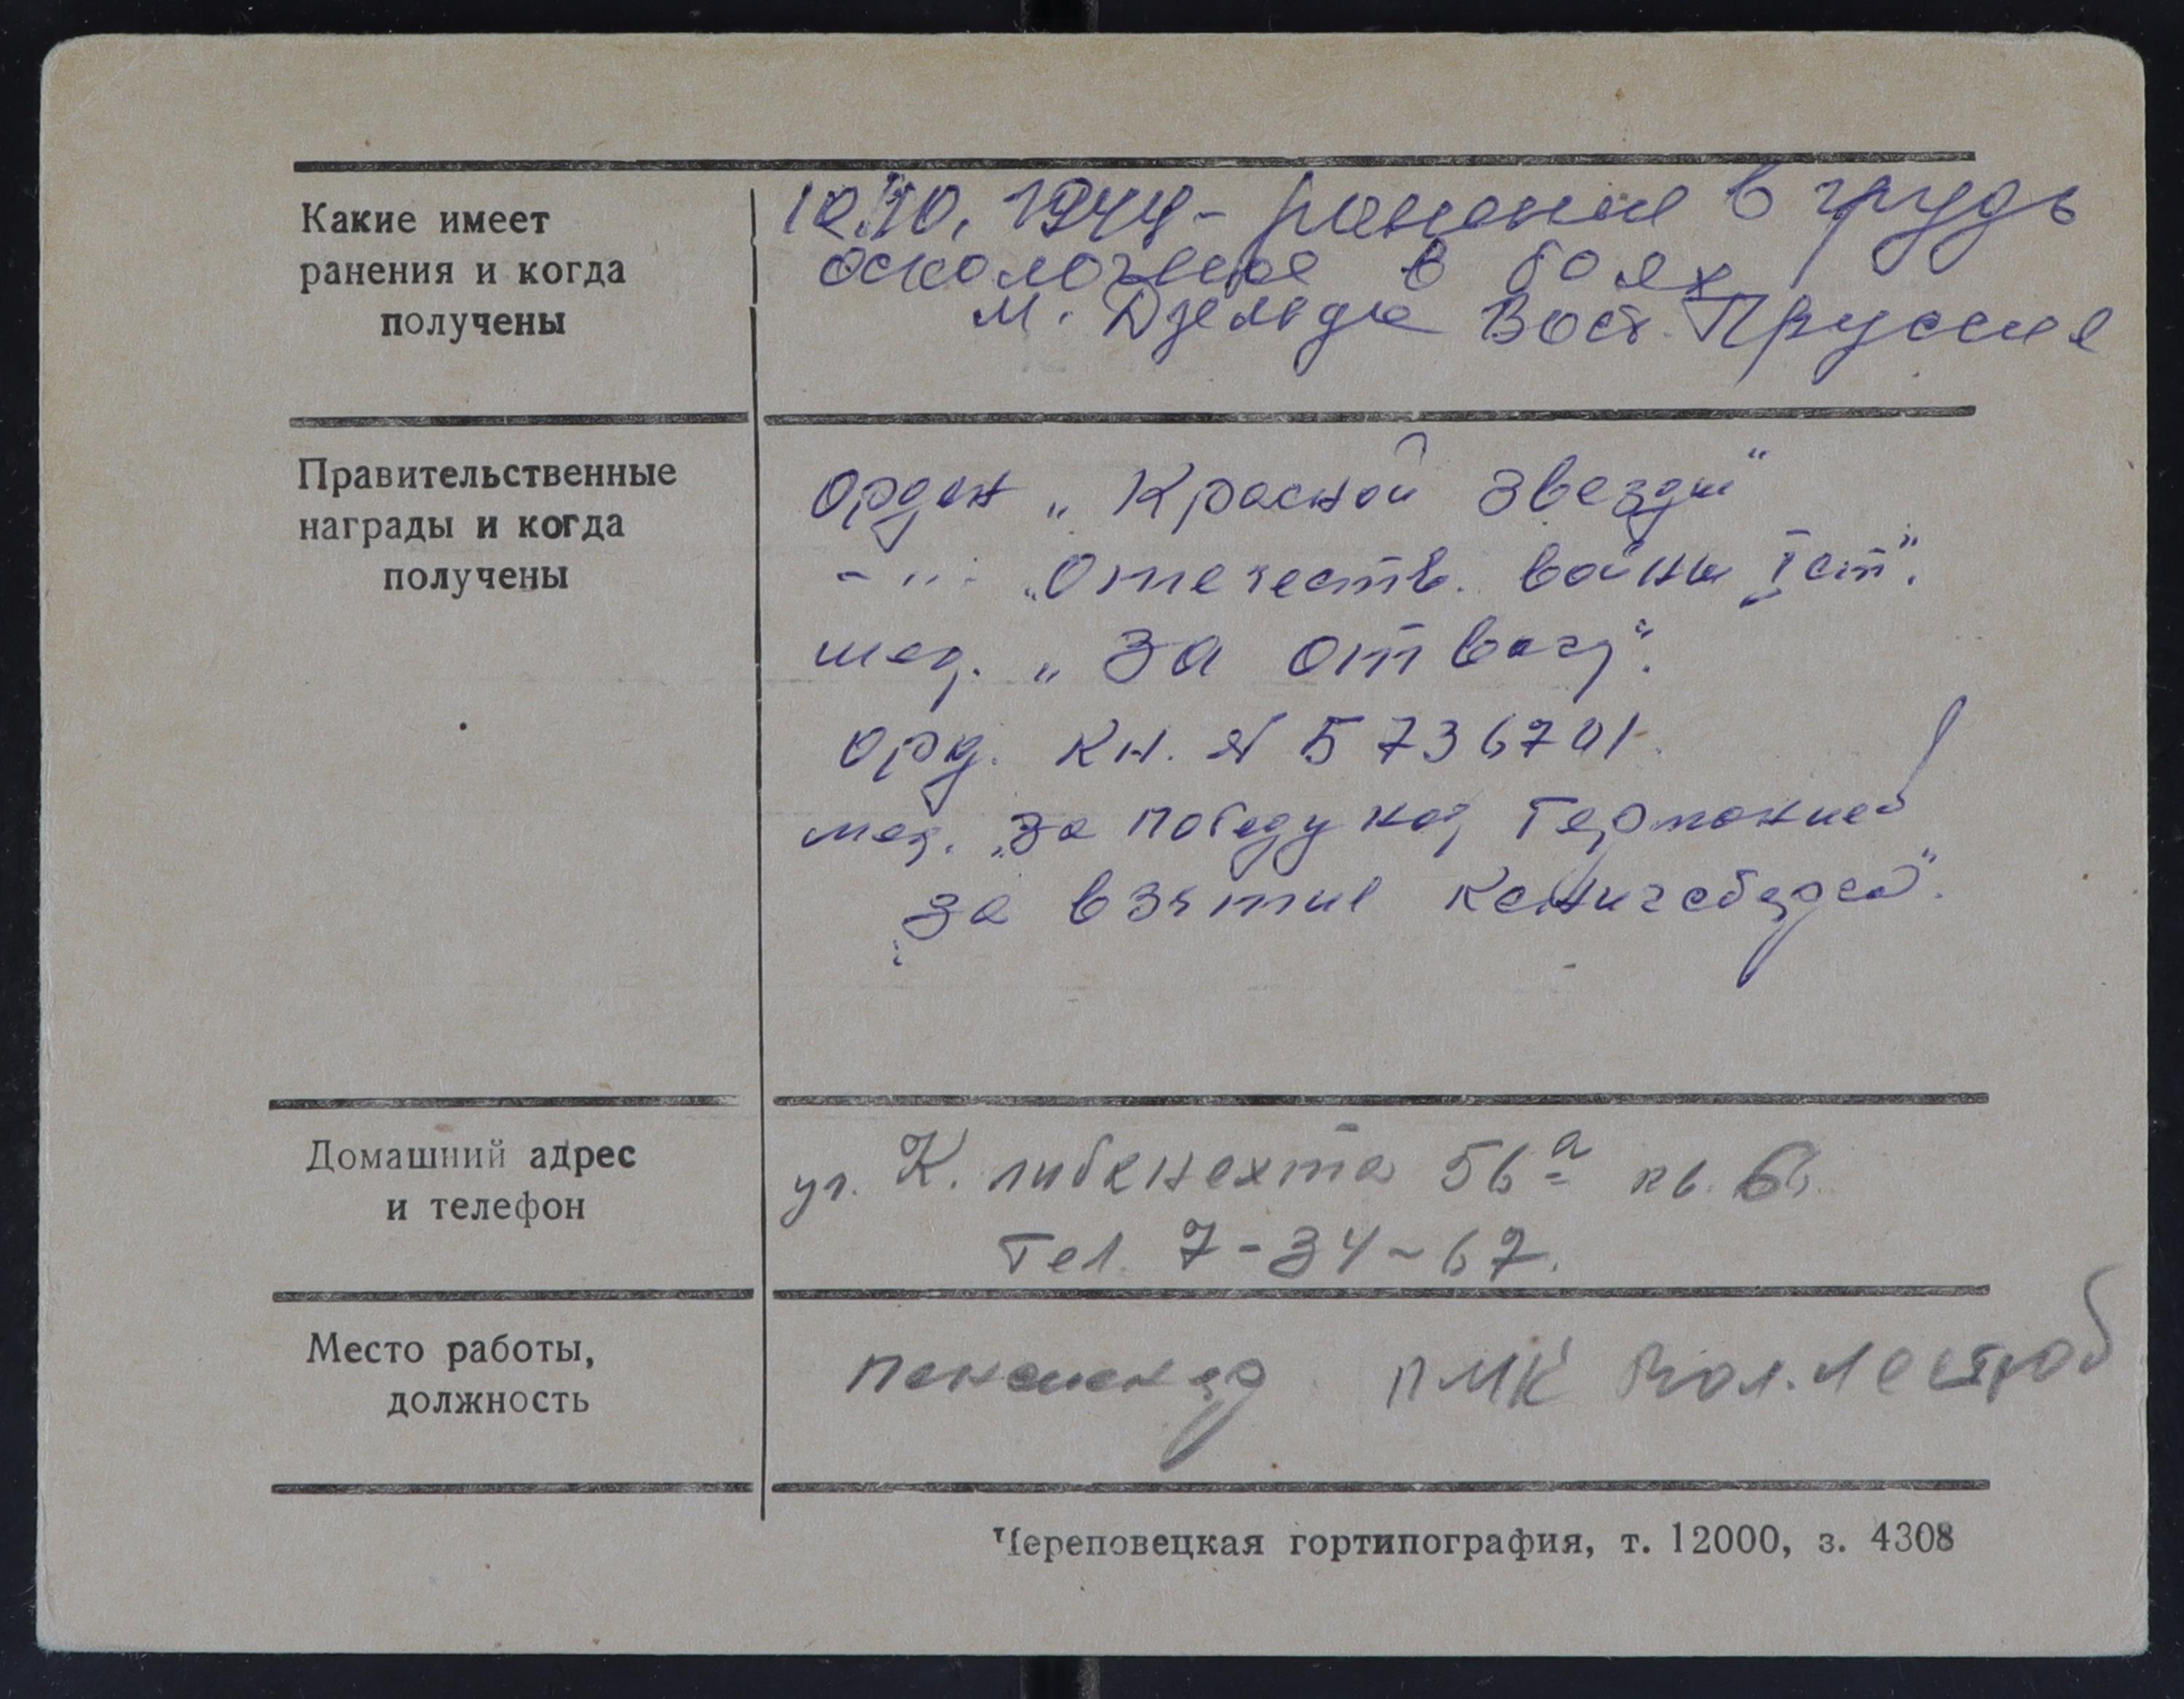 Какие имеет
ранения и когда
получены
10.10. 1944 - ранение в грудь
осколочное в боях
м. Дзельды Вост. Пруссия
Правительственные
награды и когда
получены
орден „Красной Звезды“
-"- „Отечеств. войны I ст“.
мед. „За отвагу“.
орд. кн. № Б 736701.
мед. „За победу над Германией
„за взятие Кенигсберга“.
Домашний адрес
и телефон
ул. К. либкнехта 56а кв. 66.
Тел. 7-34-67.
Место работы,
должность
пенсионер ПМК
Череповецкая гортипография, т. 12000, з. 4308